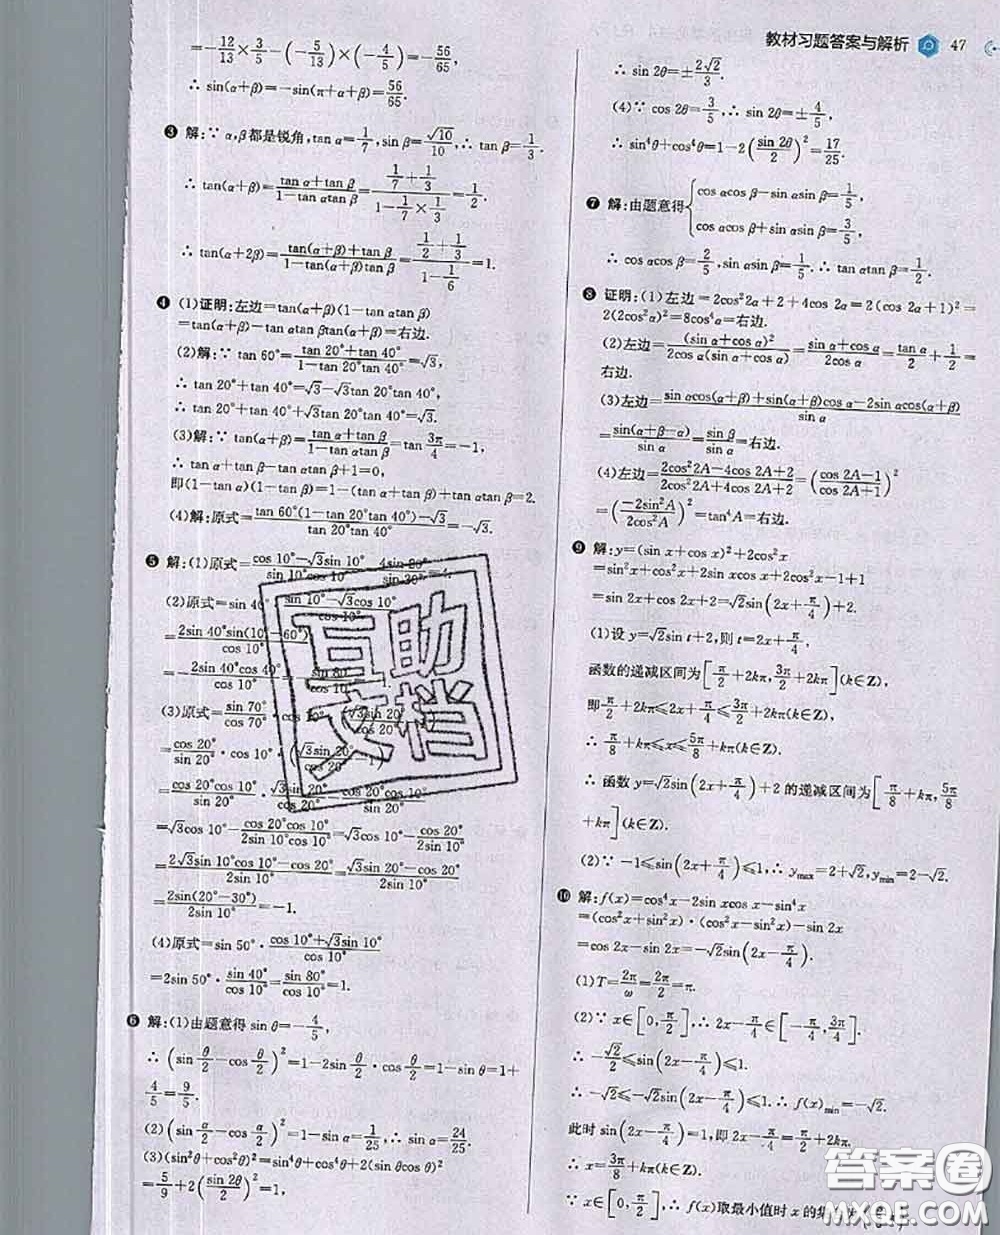 教材习题答案与解析 47
=-\frac{12}{13}×\frac{3}{5}-(-\frac{5}{13})×(-\frac{4}{5})=-\frac{56}{65},
∴ sin(α+β)=-sin(π+α+β)=\frac{56}{65}.
❸ 解:∵ α,β都是锐角,tan α=\frac{1}{7},sin β=\frac{\sqrt{10}}{10},∴ tan β=\frac{1}{3}.
∴ tan(α+β)=\frac{tan α+tan β}{1-tan αtan β}=\frac{\frac{1}{7}+\frac{1}{3}}{1-\frac{1}{7}×\frac{1}{3}}=\frac{1}{2}.
∴ tan(α+2β)=\frac{tan(α+β)+tan β}{1-tan(α+β)tan β}=\frac{\frac{1}{2}+\frac{1}{3}}{1-\frac{1}{6}}=1.
❹ (1)证明:左边=tan(α+β)(1-tan αtan β)
=tan(α+β)-tan αtan βtan(α+β)=右边.
(2)解:∵ tan 60°=\frac{tan 20°+tan 40°}{1-tan 20°tan 40°}=\sqrt{3},
∴ tan 20°+tan 40°=\sqrt{3}-\sqrt{3}tan 20°tan 40°,
∴ tan 20°+tan 40°+\sqrt{3}tan 20°tan 40°=\sqrt{3}.
(3)解:∵ tan(α+β)=\frac{tan α+tan β}{1-tan αtan β}=tan \frac{3π}{4}=-1,
∴ tan α+tan β-tan αtan β+1=0,
即(1-tan α)(1-tan β)=1-(tan α+tan β)+tan αtan β=2.
(4)解:原式=\frac{tan 60°(1-tan 20°tan 40°)-\sqrt{3}}{tan 20°tan 40°}=-\sqrt{3}.
❺ 解:(1)原式=\frac{cos 10°-\sqrt{3}sin 10°}{sin 10°cos 10°} \frac{4sin 20°}{sin 20°}=4.
(2)原式=sin 40° \frac{sin 10°-\sqrt{3}cos 10°}{cos 10°}
=\frac{2sin 40°sin(10°-60°)}{cos 10°}
=-\frac{2sin 40°cos 40°}{cos 10°} \frac{sin 80°}
(3)原式=\frac{sin 70°}{cos 70°} \sqrt{3}sin 20°
=\frac{cos 20°}{sin 20°}·cos 10°+ \sqrt{3}sin 20°
=\frac{cos 20°cos 10°}{sin 20°}· \frac{\sqrt{3}sin 20°-cos 20°}{cos 20°}
=\sqrt{3}cos 10°-\frac{cos 20°cos 10°}{2sin 10°cos 10°}=\sqrt{3}cos 10°-\frac{cos 20°}{2sin 10°}
=\frac{2\sqrt{3}sin 10°cos 10°-cos 20°}{2sin 10°}=\frac{\sqrt{3}sin 20°-cos 20°}{2sin 10°}
=\frac{2sin(20°-30°)}{2sin 10°}=-1.
(4)原式=sin 50°·\frac{cos 10°+\sqrt{3}sin 10°}{cos 10°}
=2sin 50°·\frac{sin 40°}{cos 10°}=\frac{sin 80°}{cos 10°}=1.
❻ 解:(1)由题意得 sin θ=-\frac{4}{5},
∴ (sin \frac{θ}{2}-cos \frac{θ}{2})^2=1-2sin \frac{θ}{2}·cos \frac{θ}{2}=1-sin θ=1+
\frac{4}{5}=\frac{9}{5}.
(2)(sin \frac{α}{2}-cos \frac{α}{2})^2=1-sin α=\frac{1}{25},∴ sin α=\frac{24}{25}.
(3)(sin^2θ+cos^2θ)^2=sin^4θ+cos^4θ+2(sin θcos θ)^2
=\frac{5}{9}+2(\frac{sin 2θ}{2})^2=1,
∴ sin 2θ=±\frac{2\sqrt{2}}{3}.
(4)∵ cos 2θ=\frac{3}{5},∴ sin 2θ=±\frac{4}{5},
∴ sin^4θ+cos^4θ=1-2(\frac{sin 2θ}{2})^2=\frac{17}{25}.
❼ 解:由题意得{cos αcos β-sin αsin β=\frac{1}{5},
cos αcos β+sin αsin β=\frac{3}{5},
∴ cos αcos β=\frac{2}{5},sin αsin β=\frac{1}{5}.∴ tan αtan β=\frac{1}{2}.
❽ 证明:(1)左边=2cos^22α+2+4cos 2α=2(cos 2α+1)^2=
2(2cos^2α)^2=8cos^4α=右边.
(2)左边=\frac{(sin α+cos α)^2}{2cos α(sin α+cos α)}=\frac{sin α+cos α}{2cos α}=\frac{tan α}{2}+\frac{1}{2}=
右边.
(3)左边=\frac{sin αcos(α+β)+sin(α+β)cos α-2sin αcos(α+β)}{sin α}
=\frac{sin(α+β-α)}{sin α}=\frac{sin β}{sin α}=右边.
(4)左边=\frac{2cos^22A-4cos 2A+2}{2cos^22A+4cos 2A+2}=(\frac{cos 2A-1}{cos 2A+1})^2
=(\frac{-2sin^2A}{2cos^2A})^2=tan^4A=右边.
❾ 解:y=(sin x+cos x)^2+2cos^2x
=sin^2x+cos^2x+sin 2x+2cos^2x-1+1
=sin 2x+cos 2x+2=\sqrt{2}sin(2x+\frac{π}{4})+2.
(1)设 y=\sqrt{2}sin t+2,则 t=2x+\frac{π}{4},
函数的递减区间为[\frac{π}{2}+2kπ,\frac{3π}{2}+2kπ](k∈Z),
即\frac{π}{2}+2kπ≤2x+\frac{π}{4}≤\frac{3π}{2}+2kπ(k∈Z),
∴ \frac{π}{8}+kπ≤x≤\frac{5π}{8}+kπ(k∈Z),
∴ 函数 y=\sqrt{2}sin(2x+\frac{π}{4})+2 的递减区间为[\frac{π}{8}+kπ,\frac{5π}{8}
+kπ](k∈Z).
(2)∵ -1≤sin(2x+\frac{π}{4})≤1,∴ y_{max}=2+\sqrt{2},y_{min}=2-\sqrt{2}.
❿ 解:f(x)=cos^4x-2sin xcos x-sin^4x
=(cos^2x+sin^2x)·(cos^2x-sin^2x)-sin 2x
=cos 2x-sin 2x=-\sqrt{2}sin(2x-\frac{π}{4}).
(1)T=\frac{2π}{ω}=\frac{2π}{2}=π.
(2)∵ x∈[0,\frac{π}{2}],∴ 2x-\frac{π}{4}∈[-\frac{π}{4},\frac{3π}{4}].
∴ -\frac{\sqrt{2}}{2}≤sin(2x-\frac{π}{4})≤1.
∴ -\sqrt{2}≤-\sqrt{2}sin(2x-\frac{π}{4})≤1.∴ f(x)_{min}=-\sqrt{2}.
此时 sin(2x-\frac{π}{4})=1,即 2x-\frac{π}{4}=\frac{π}{2}+2kπ,
∴ x=\frac{3π}{8}+kπ(k∈Z).
∵ x∈[0,\frac{π}{2}],∴ f(x)取最小值时 x 的集
互助
文档
答案圈
MXQE.COM